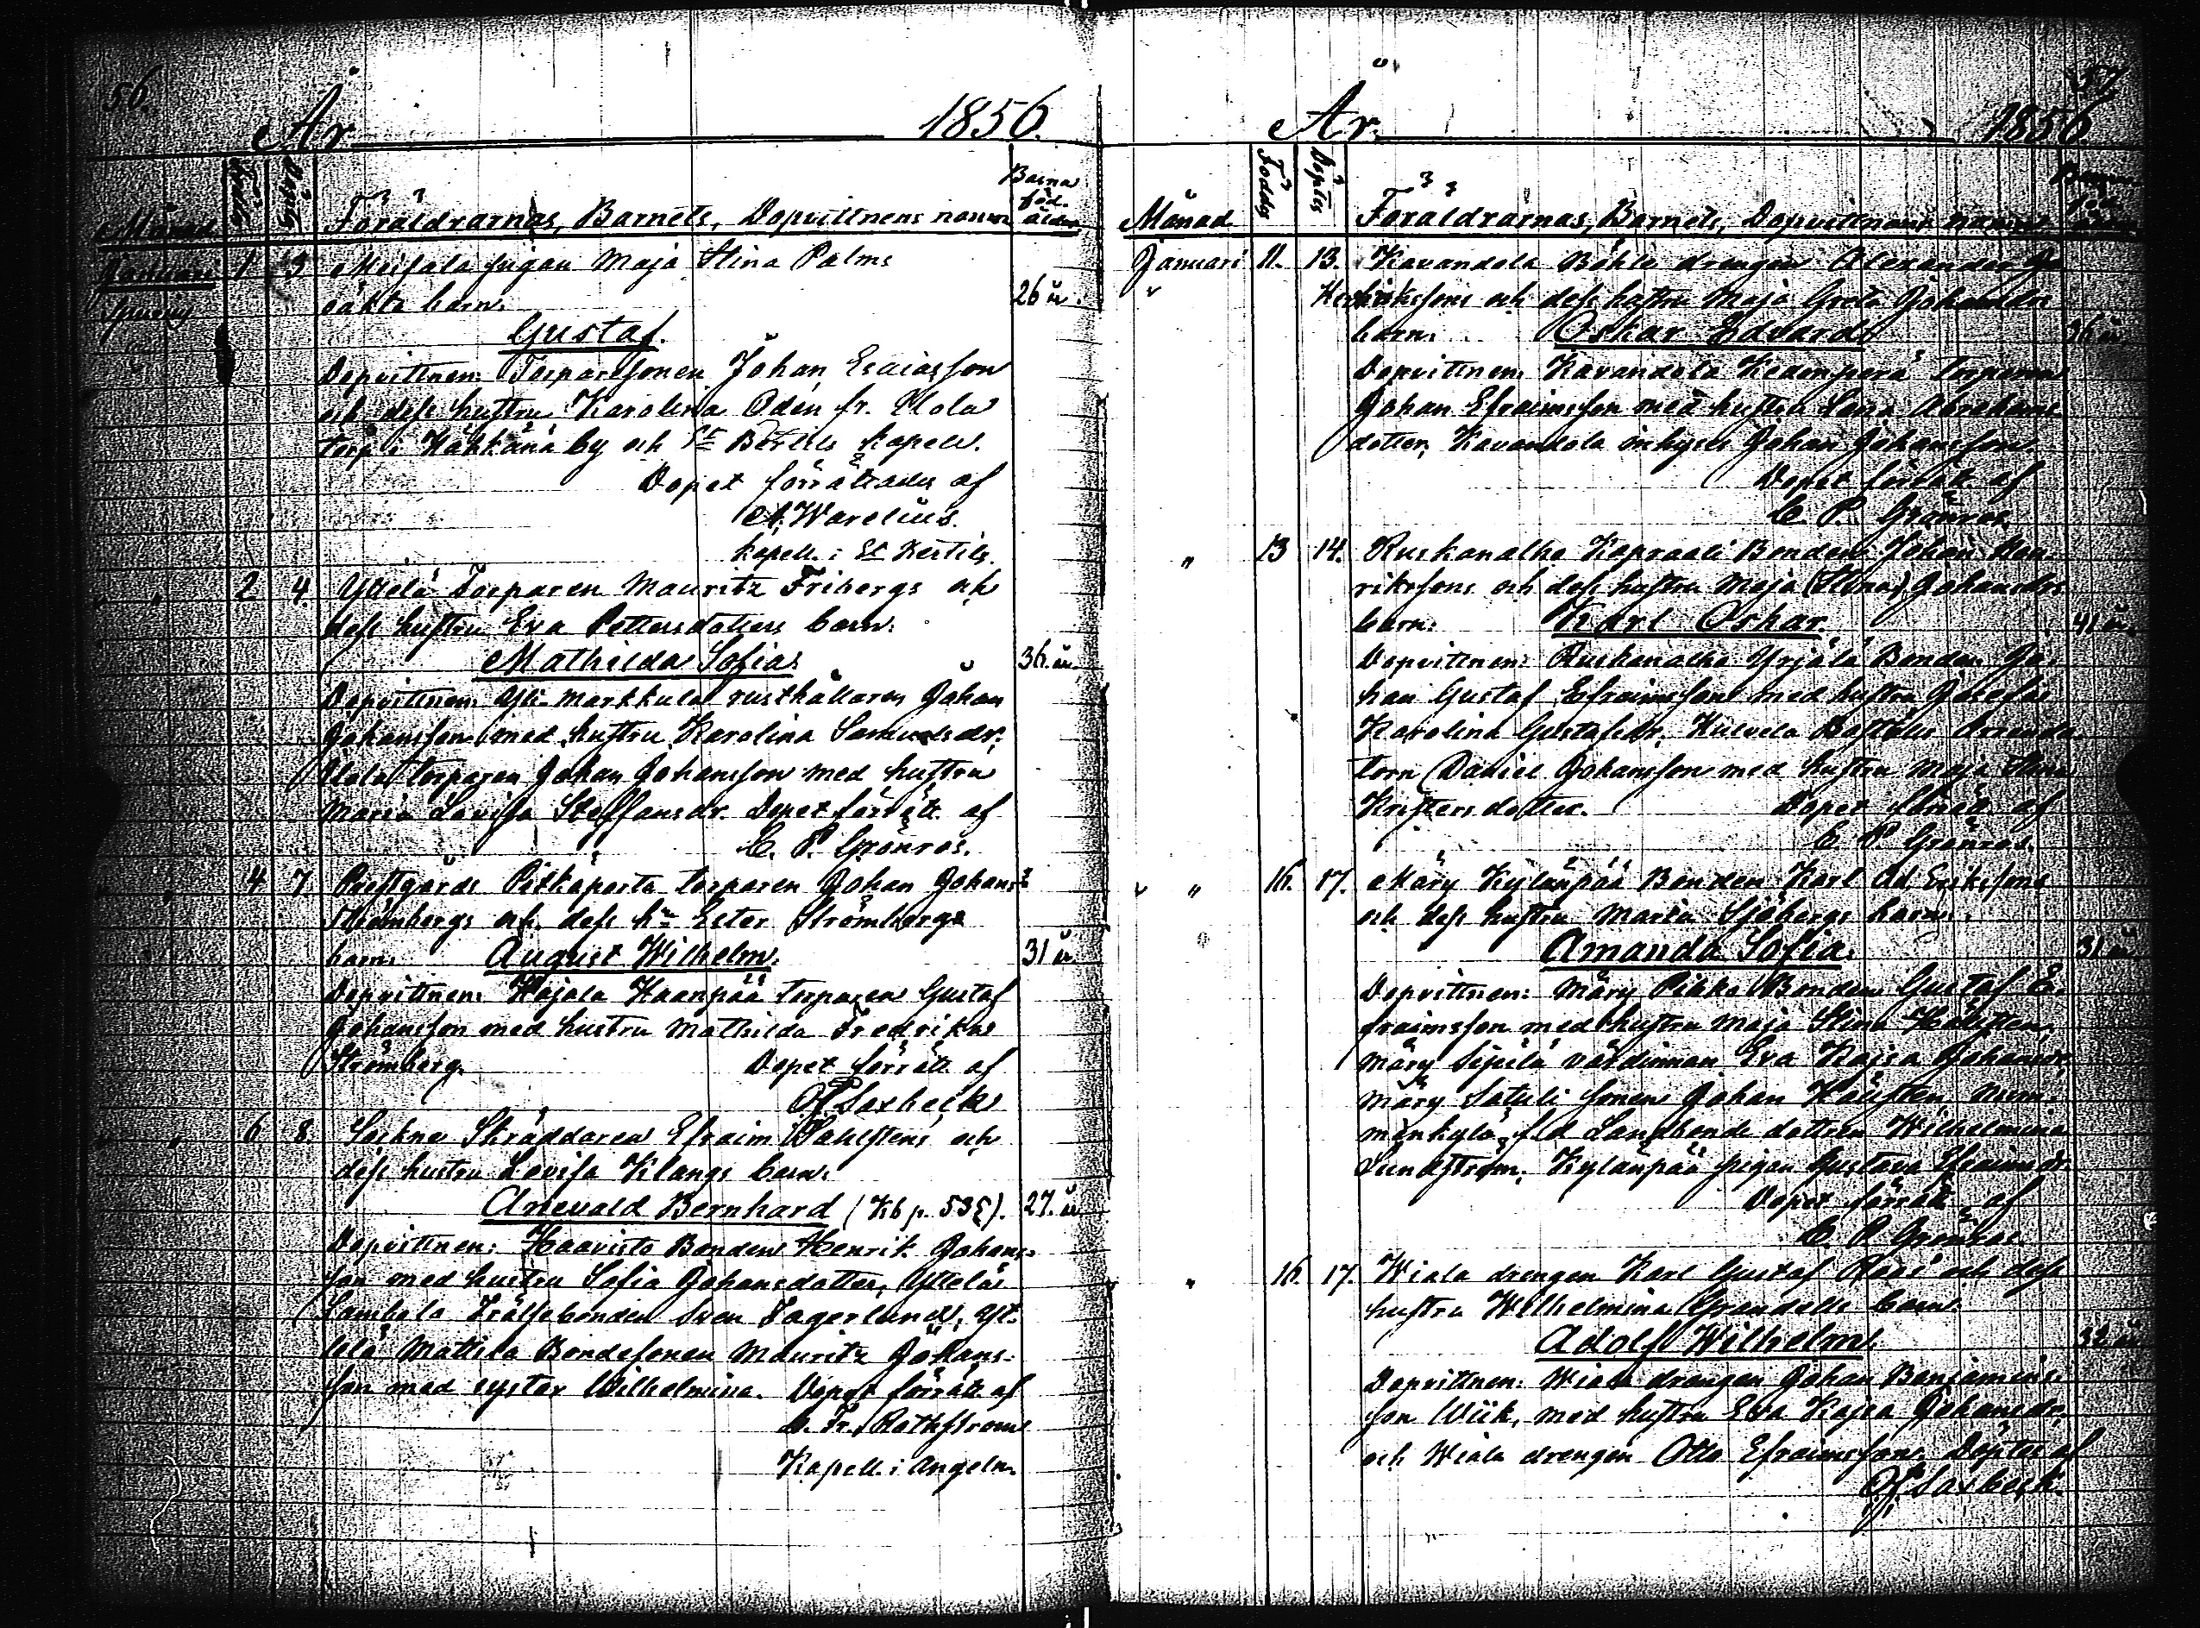 56.
År 1856.
Månad Födde Döpte Föräldrarnas, Barnets, Dopvittnens namn Barna föd. ålder
Januari 1 3 Meisala pigan Maja Stina Palms
oäkta barn. 26 år.
Gustaf.
Dopvittnen: Torparesonen Johan Esaiasson
och dess hustru Karolina Odén fr. Ulola
torp i Kähkänä by och St Bertils kapell.
Dopet förrättades af
A. Warelius.
kapell. i St Kertils.
" " 2 4. Yttelä Torparen Mauritz Fribergs och
dess hustru Eva Pettersdotters barn:
Mathilda Sofia. 36. år
Dopvittnen: Yli-Markkula rusthållaren Johan
Johansson med hustru Karolina Samuelsdr.
Ulola torparen Johan Johansson med hustru
Maria Lovisa Steffansdr. Dopet förrätt. af
C. P. Grönros.
" 4 7 Prestgårds Pitkäporta torparen Johan Johans:
Strömbergs och dess hu Ester Strömbergs
barn: August Wilhelm. 31 år
Dopvittnen: Kojola Haanpää torparen Gustaf
Johansson med hustru Mathilda Fredrika
Strömberg. Dopet förrätt. af
Saxbeck
" 6 8 Sackna Skräddaren Efraim Dahlstens och
dess hustru Lovisa Klangs barn:
Anevald Bernhard (Kb p. 535). 27. år
Dopvittnen: Haavisto Bonden Henrik Johans-
son med hustru Sofia Johansdotter, Yttelä
Lambola Frälsebonden Sven Fagerlund, Yt-
telä Mattila Bondesonen Mauritz Johans-
son med syster Wilhelmina. Dopet förrätt. af
C. Fr. Rothström
Kapell. i Angeln.
57
År. 1856.
Månad Födde Döpte Föräldrarnas, Barnets, Dopvittnens namn
Januari 11. 13. Kavandola Böhle drengen Alexander
Henrikssons och dess hustru Maja Greta Johansdrs
barn: Oskar Edvard 36 år
Dopvittnen: Kavandola Kedonperä Torparen
Johan Efraimsson med hustru Lena Abrahams
dotter, Kavandola inhyses Johan Johansson.
Dopet förrätt. af
C. P. Grönros.
" 13 14. Ruskanalho Kapraali Bonden Johan Hen-
rikssons och dess hustru Maja (Stina) Johansdrs
barn: Karl Oskar 41 år.
Dopvittnen: Ruskanalho Yrjälä Bonden Jo-
han Gustaf Efraimsson med hustru Josefa
Karolina Gustafsdr. Kulvela Boställs Arrenda
torn Daniel Johansson med hustru Maja Stina
Kristersdotter. Dopet förrätt af
C. P. Grönros.
" " 16. 17. Märy Kylänpää Bonden Karl Ad. Erikssons
och dess hustru Maria Sjöbergs barn:
Amanda Sofia. 31 år
Dopvittnen: Märy Pirkko Bonden Gustaf E-
fraimsson med hustru Maja Stina Hellsten,
Märy Sipilä värdinnan Eva Kajsa Johansdr,
Märy Satuli sonen Johan Hällsten, Num-
menkylä f.d Landbonde dottren Wilhelmina
Sundström, Kylänpää pigan Gustava Efraimsdr.
Dopet förrätt. af
C. P. Grönros
" 16. 17. Wiala drengen Karl Gustaf Roos och dess
hustru Wilhelmina Grandells barn:
Adolf Wilhelm. 32 år
Dopvittnen: Wiala drengen Johan Benjamins-
son Wiik, med hustru Eva Kajsa Johansdr,
och Wiala drengen Otto Efraimsson. Döptes af
Saxbeck.